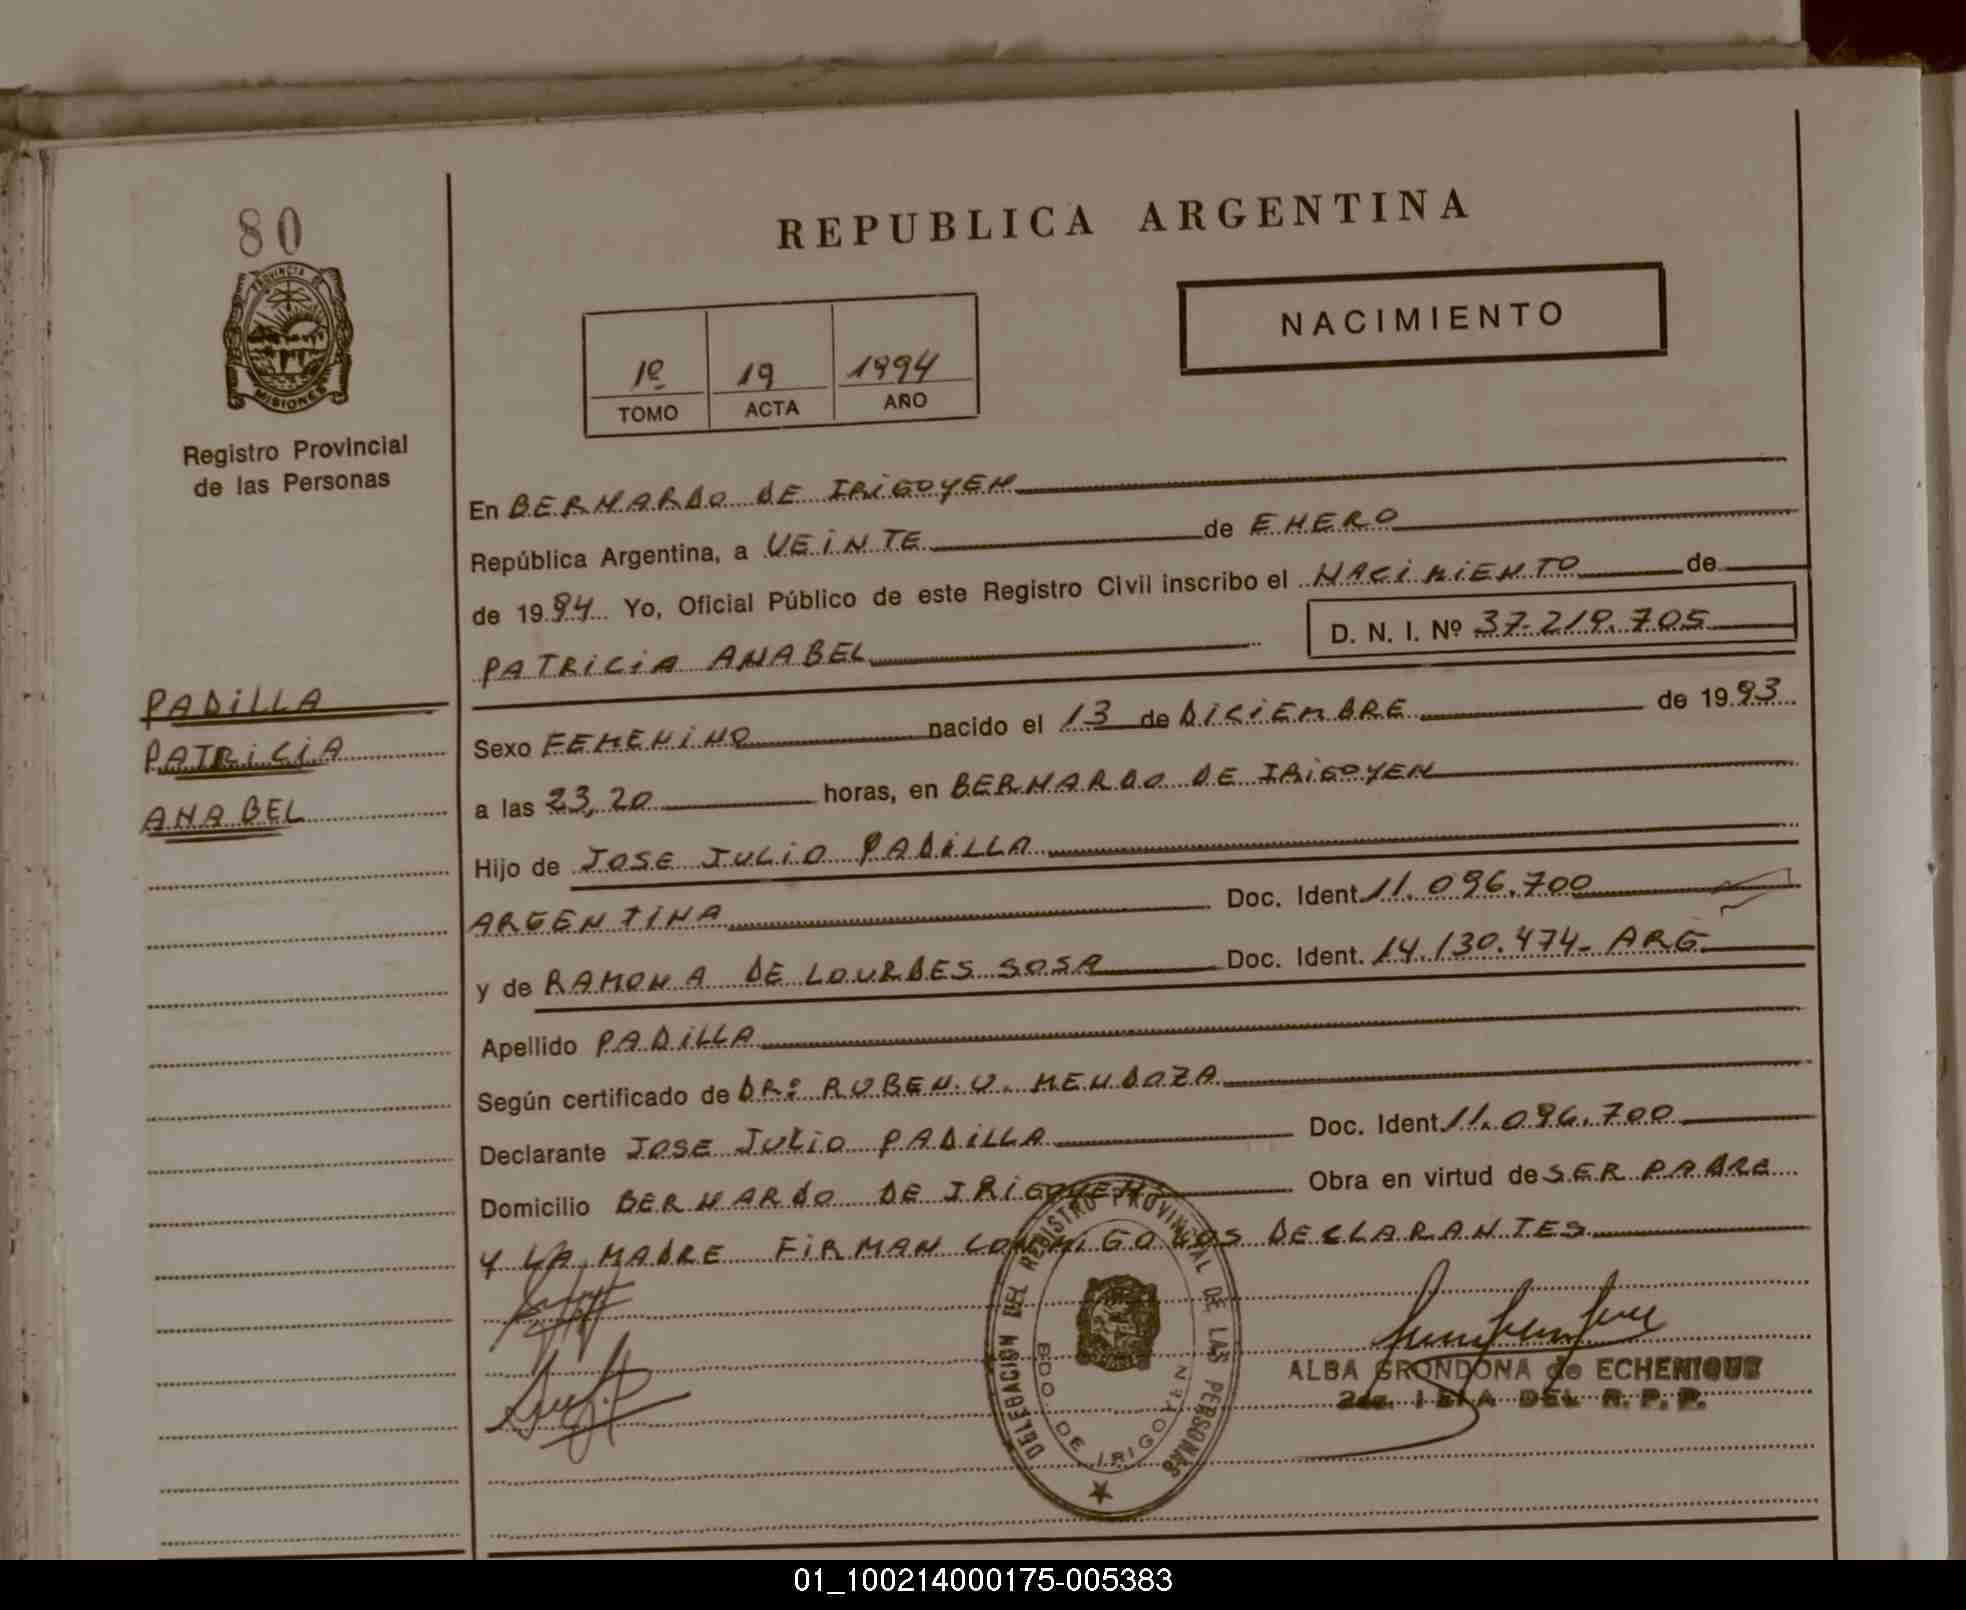 80
PROVINCIA DE
MISIONES
Registro Provincial
de las Personas
REPUBLICA ARGENTINA
NACIMIENTO
1º 19 1994
TOMO ACTA AÑO
En BERNARDO DE IRIGOYEN
República Argentina, a VEINTE de ENERO
de 1994 Yo, Oficial Público de este Registro Civil inscribo el NACIMIENTO de
D. N. I. Nº 37.219.705
PATRICIA ANABEL
PADILLA
PATRICIA
ANABEL
Sexo FEMENINO nacido el 13 de DICIEMBRE de 1993
a las 23,20 horas, en BERNARDO DE IRIGOYEN
Hijo de JOSE JULIO PADILLA
ARGENTINA Doc. Ident. 11.096.700
y de RAMONA DE LOURDES SOSA Doc. Ident. 14.130.474- ARG
Apellido PADILLA
Según certificado de DR: RUBEN.O. MENDOZA
Declarante JOSE JULIO PADILLA Doc. Ident. 11.096.700
Domicilio BERNARDO DE IRIGOYEN Obra en virtud de SER PADRE
Y LA MADRE FIRMAN CONMIGO LOS DECLARANTES
DELEGACION DEL REGISTRO PROVINCIAL DE LAS PERSONAS
BDO. DE IRIGOYEN
ALBA GRONDONA de ECHENIQUE
DEL R. P. P.
01_100214000175-005383